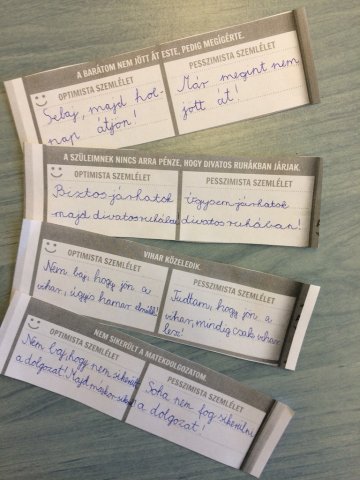 A BARÁTOM NEM JÖTT ÁT ESTE, PEDIG MEGÍGÉRTE.
OPTIMISTA SZEMLÉLET
Sebaj, majd hol-
nap átjön!
PESSZIMISTA SZEMLÉLET
Már megint nem
jött át!
A SZÜLEIMNEK NINCS ARRA PÉNZE, HOGY DIVATOS RUHÁKBAN JÁRJAK.
OPTIMISTA SZEMLÉLET
Biztos járhatok
majd divatos ruhákban
PESSZIMISTA SZEMLÉLET
Úgysem járhatok
divatos ruhában!
VIHAR KÖZELEDIK.
OPTIMISTA SZEMLÉLET
Nem baj, hogy jön a
vihar, úgyis hamar elmúlik!
PESSZIMISTA SZEMLÉLET
Tudtam, hogy jön a
vihar, mindig csak vihar
lesz!
NEM SIKERÜLT A MATEKDOLGOZATOM.
OPTIMISTA SZEMLÉLET
Nem baj, hogy nem sikerült
a dolgozat! Majd máskor
PESSZIMISTA SZEMLÉLET
Soha nem fog sikerülni
a dolgozat!